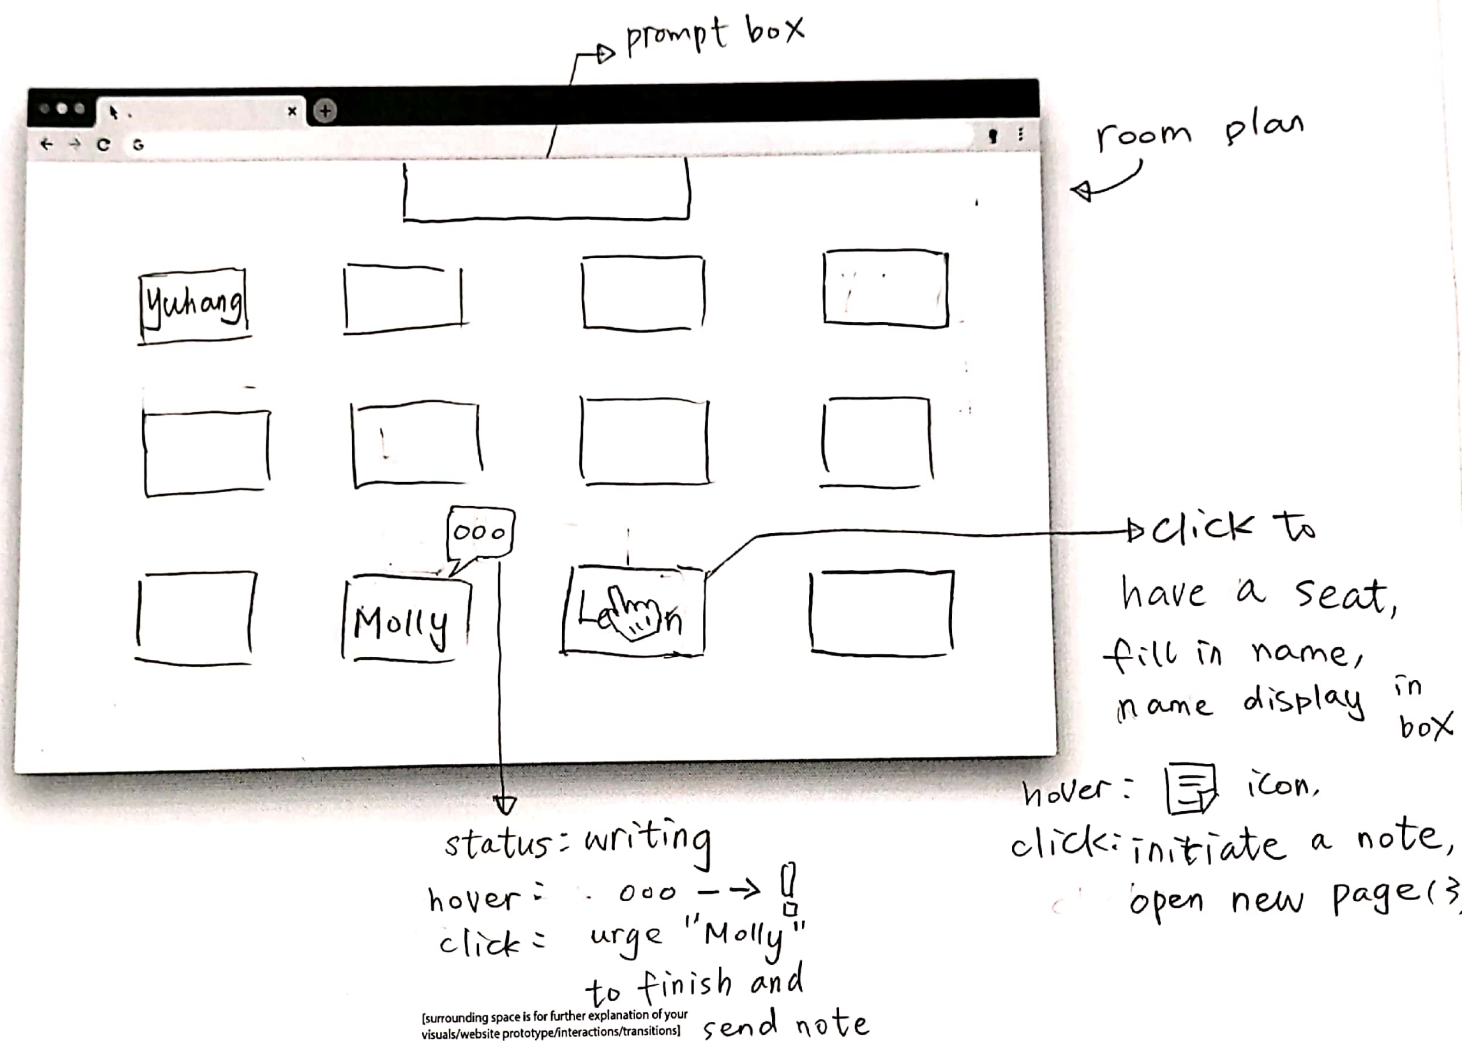 prompt box
room plan
Yuhang
click to
have a seat,
fill in name,
name display in
box
Molly
hover: icon,
click: initiate a note,
open new page(3
status: writing
hover: ooo --> !
click: urge "Molly"
to finish and
send note
[surrounding space is for further explanation of your
visuals/website prototype/interactions/transitions]